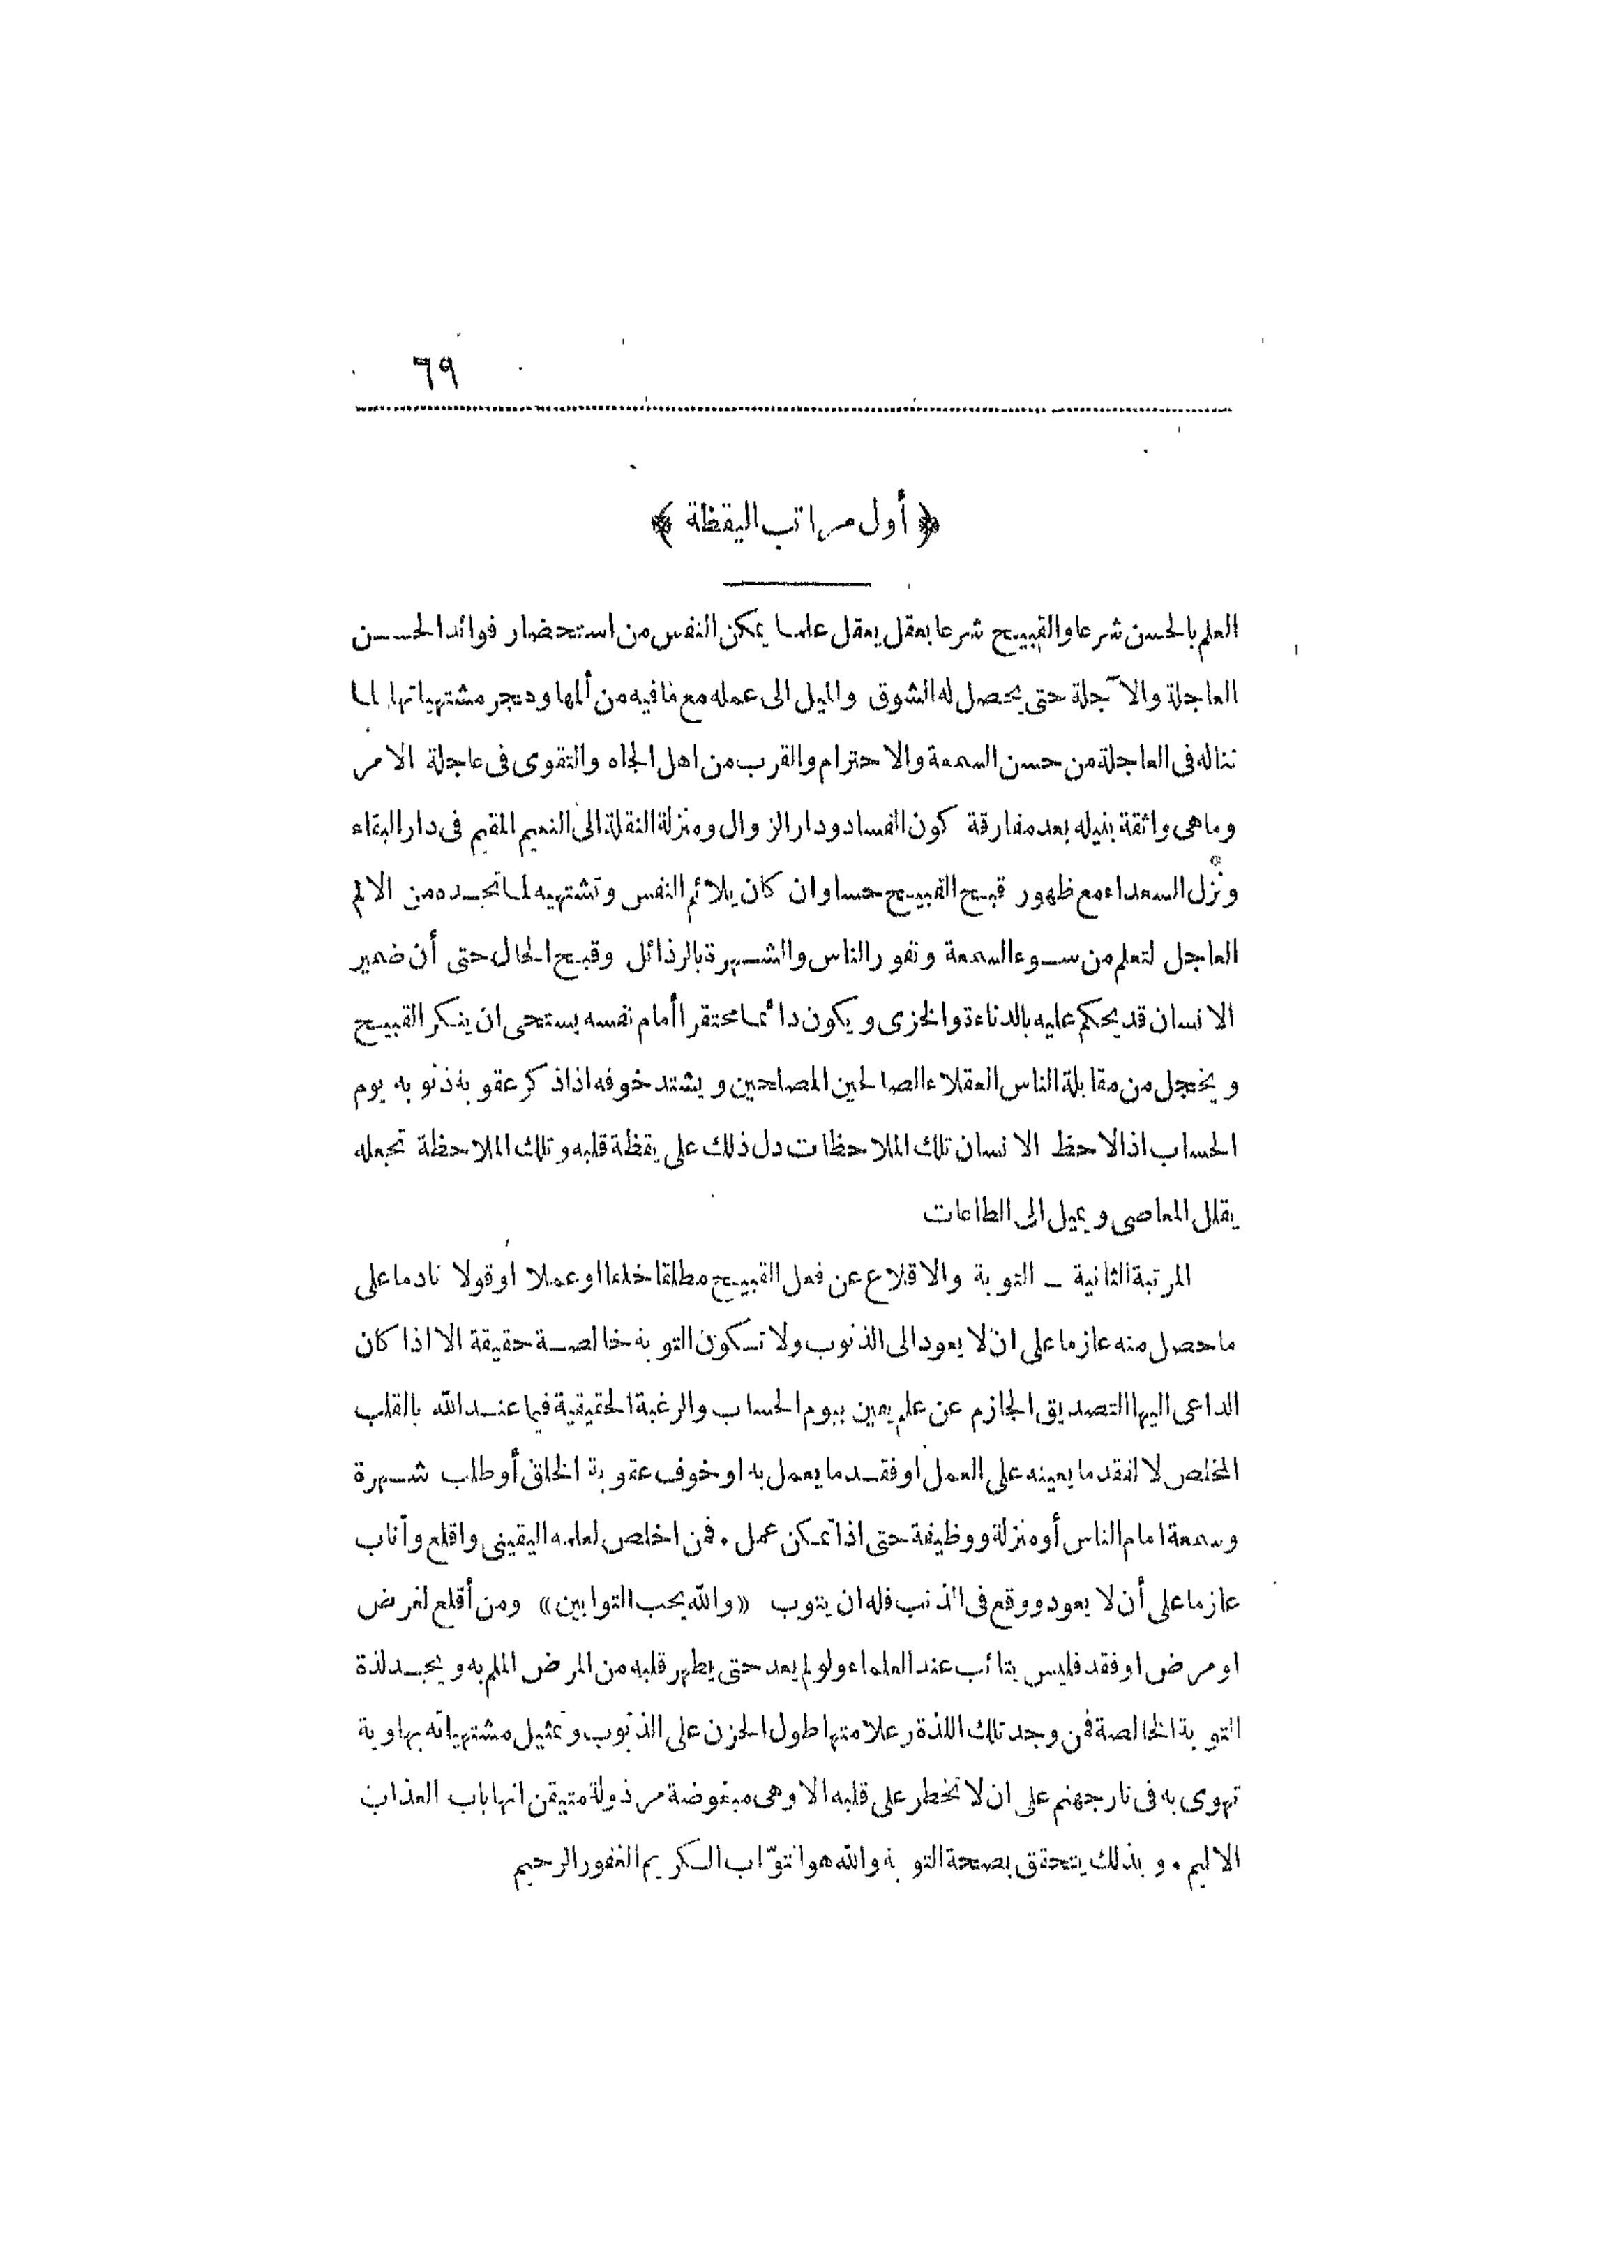 ٦٩
﴿ أول مراتب اليقظة ﴾
العلم بالحسن شرعا والقبيح شرعا بعقل يعقل علما يمكن النفس من استحضار فوائد الحسن
العاجلة والآجلة حتى يحصل له الشوق والميل الى عمله مع مافيه من ألمها وهجر مشتهياتها لما
تناله فى العاجلة من حسن السمعة والاحترام والقرب من اهل الجاه والتقوى فى عاجلة الامر
وماهى واثقة بنيله بعد مفارقة كون الفساد ودار الزوال ومنزلة النقلة الى النعيم المقيم فى دار البقاء
ونزل السعداء مع ظهور قبح القبيح حسا وان كان يلائم النفس وتشتهيه لما تجده من الالم
العاجل لتعلم من سوء السمعة ونفور الناس والشهرة بالرذائل وقبح الحال حتى أن ضمير
الانسان قد يحكم عليه بالدناءة والخزى ويكون دائما محتقرا أمام نفسه يستحى ان ينكر القبيح
ويخجل من مقابلة الناس العقلاء الصالحين المصلحين ويشتد خوفه اذا ذكر عقوبة ذنوبه يوم
الحساب اذا لاحظ الانسان تلك الملاحظات دل ذلك على يقظة قلبه وتلك الملاحظة تجعله
يقلل المعاصى ويميل الى الطاعات
المرتبة الثانية ــ التوبة والاقلاع عن فعل القبيح مطلقا خلقا او عملا او قولا نادما على
ماحصل منه عازما على ان لا يعود الى الذنوب ولا تكون التوبة خالصة حقيقة الا اذا كان
الداعى اليها التصديق الجازم عن علم يعين بيوم الحساب والرغبة الحقيقية فيما عند الله بالقلب
المخلص لا لفقد ما يعينه على العمل او فقد ما يعمل به او خوف عقوبة الخلق أو طلب شهرة
وسمعة امام الناس أو منزلة ووظيفة حتى اذا تمكن عمل . فمن اخلص لعلمه اليقينى واقلع وأناب
عازما على أن لا يعود ووقع فى الذنب فله ان يتوب «والله يحب التوابين» ومن أقلع لغرض
او مرض او فقد فليس بتائب عند العلماء ولو لم يعد حتى يطهر قلبه من المرض الملم به ويجد لذة
التوبة الخالصة فمن وجد تلك اللذة وعلامتها طول الحزن على الذنوب وتمثيل مشتهياته بهاوية
تهوى به فى نار جهنم على ان لا تخطر على قلبه الا وهى مبغوضة مرذولة متيقن انها باب العذاب
الاليم . وبذلك يتحقق بصحة التوبة والله هو التوّاب الكريم الغفور الرحيم